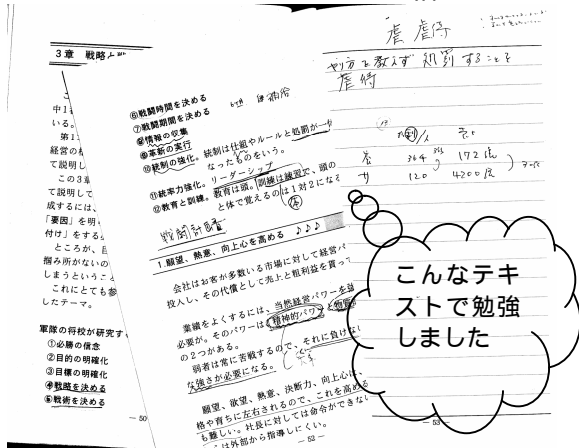 3章 戦略と
中1
いる。
第1
経営の
て説明し
この3章
て説明して
成するには、
「要因」を明
付け」をする
ところが、目
掴み所がないの
しまうというこ
これにとても参
したテーマ。
軍隊の将校が研究す
①必勝の信念
②目的の明確化
③目標の明確化
④戦略を決める
⑤戦術を決める
― 50
⑥戦闘時間を決める
⑦戦闘期間を決める
⑧情報の収集
⑨革新の実行
⑩統制の強化。統制は仕組やルールと処罰が一
なったものをいう。
⑪統率力強化。リーダーシップ
⑫教育と訓練。教育は頭。訓練は練習で、頭の
と体で覚えるのは1対2になる
1.願望、熱意、向上心を高める ♪♪♪
会社はお客が多数いる市場に対して経営パ
投入し、その代償として売上と粗利益を貰って
業績をよくするには、当然経営パワーを
必要が。そのパワーは精神的パワーと物
の2つがある。
弱者は常に苦戦するので、それに負けない
な強さが必要になる。
願望、欲望、熱意、決断力、向上心は、
格や育ちに左右されるので、これを高める
も難しい。社長に対しては命令ができない
は外部から指導しにくい。
― 52 ―
やり方を教えず 処罰することを
虐待
364
172億
120
4200億
― 53
こんなテキ
ストで勉強
しました